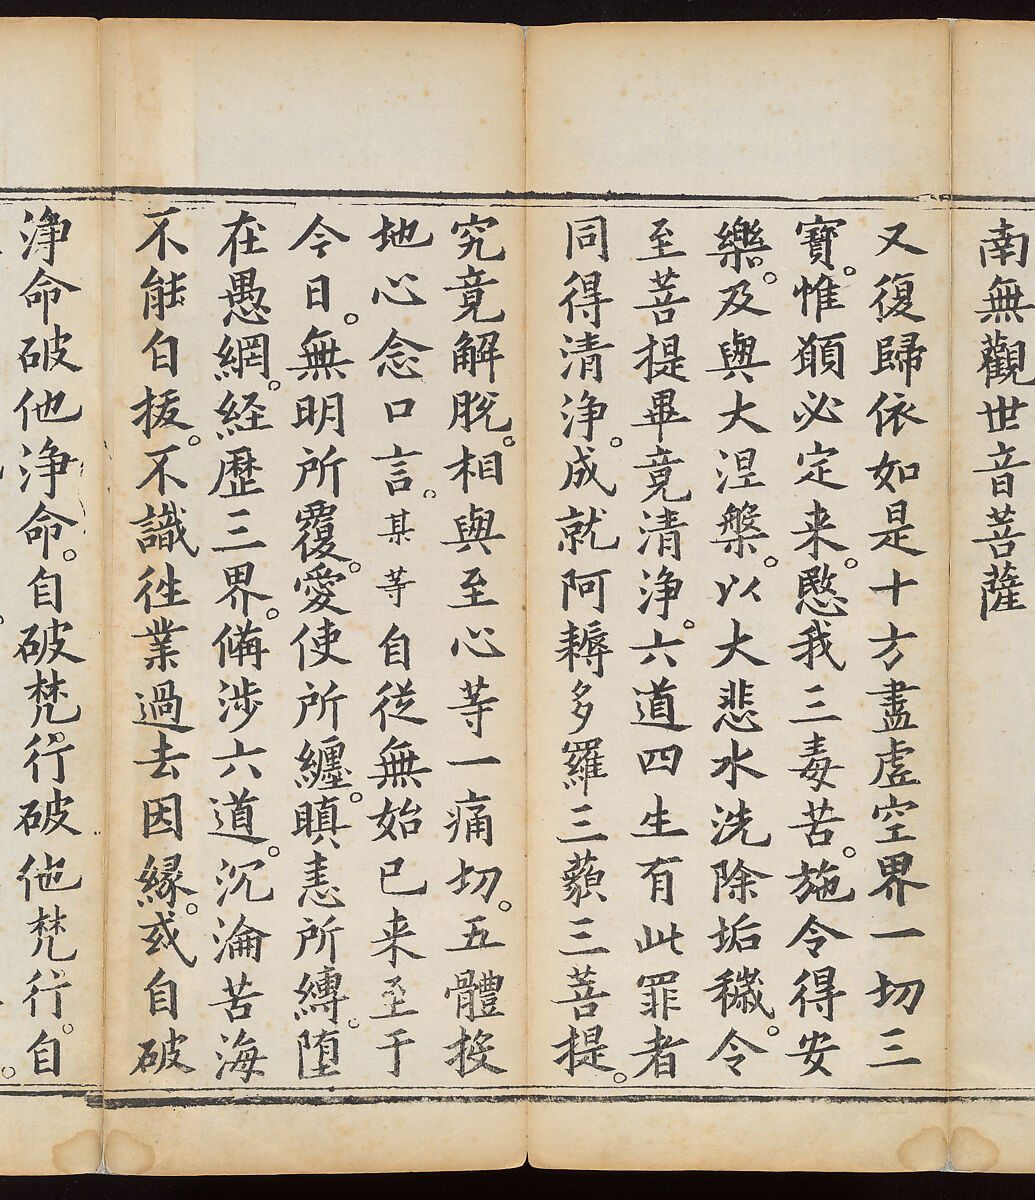 南無觀世音菩薩
又復歸依如是十方盡虛空界一切三
寶。惟願必定来。愍我三毒苦。施令得安
樂。及與大涅槃。以大悲水洗除垢穢。令
至菩提畢竟清淨。六道四生有此罪者
同得清淨。成就阿耨多羅三藐三菩提。
究竟解脫。相與至心等一痛切。五體投
地心念口言。某等自從無始已来至于
今日。無明所覆。愛使所纏。瞋恚所縛。墮
在愚網。經歷三界。俻涉六道。沉淪苦海
不能自拔。不識徃業過去因緣。或自破
淨命破他淨命。自破梵行破他梵行。自